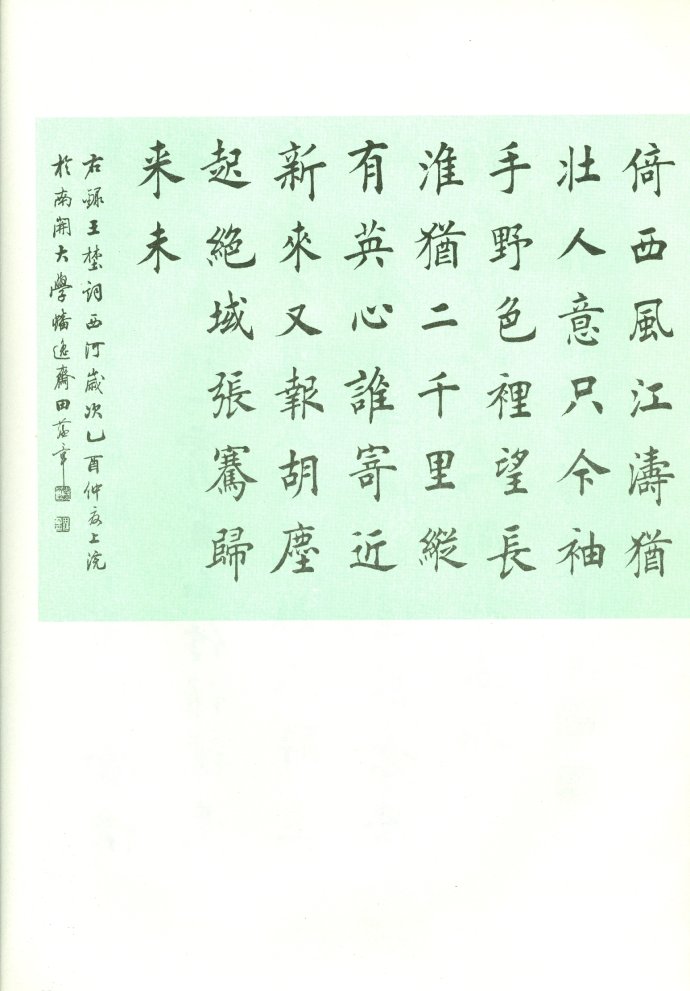 倚西風江濤猶
壯人意只今袖
手野色裡望長
淮猶二千里縱
有英心誰寄近
新來又報胡塵
起絕域張騫歸
来未
右錄王埜詞西河歲次乙酉仲夏上浣
於南開大學幡逸齋田蘊章